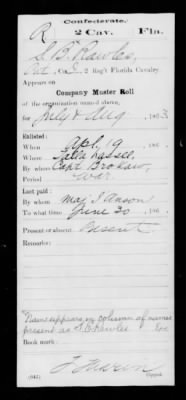 Confederate.
R 2 Cav. Fla.
S. B. Rawles
Pvt, Co. B, 2 Reg't Florida Cavalry.
Appears on
Company Muster Roll
of the organization named above,
for July & Aug, 1863
Enlisted:
When Apl, 19, 186 .
Where Talla hassee,
By whom Capt Brokaw,
Period War.
Last paid:
By whom Maj
To what time June 30, 186 .
Present or absent Present
Remarks:
Name appears in column of names
present as S. B. Rawles
Book mark:
(642) Copyist.